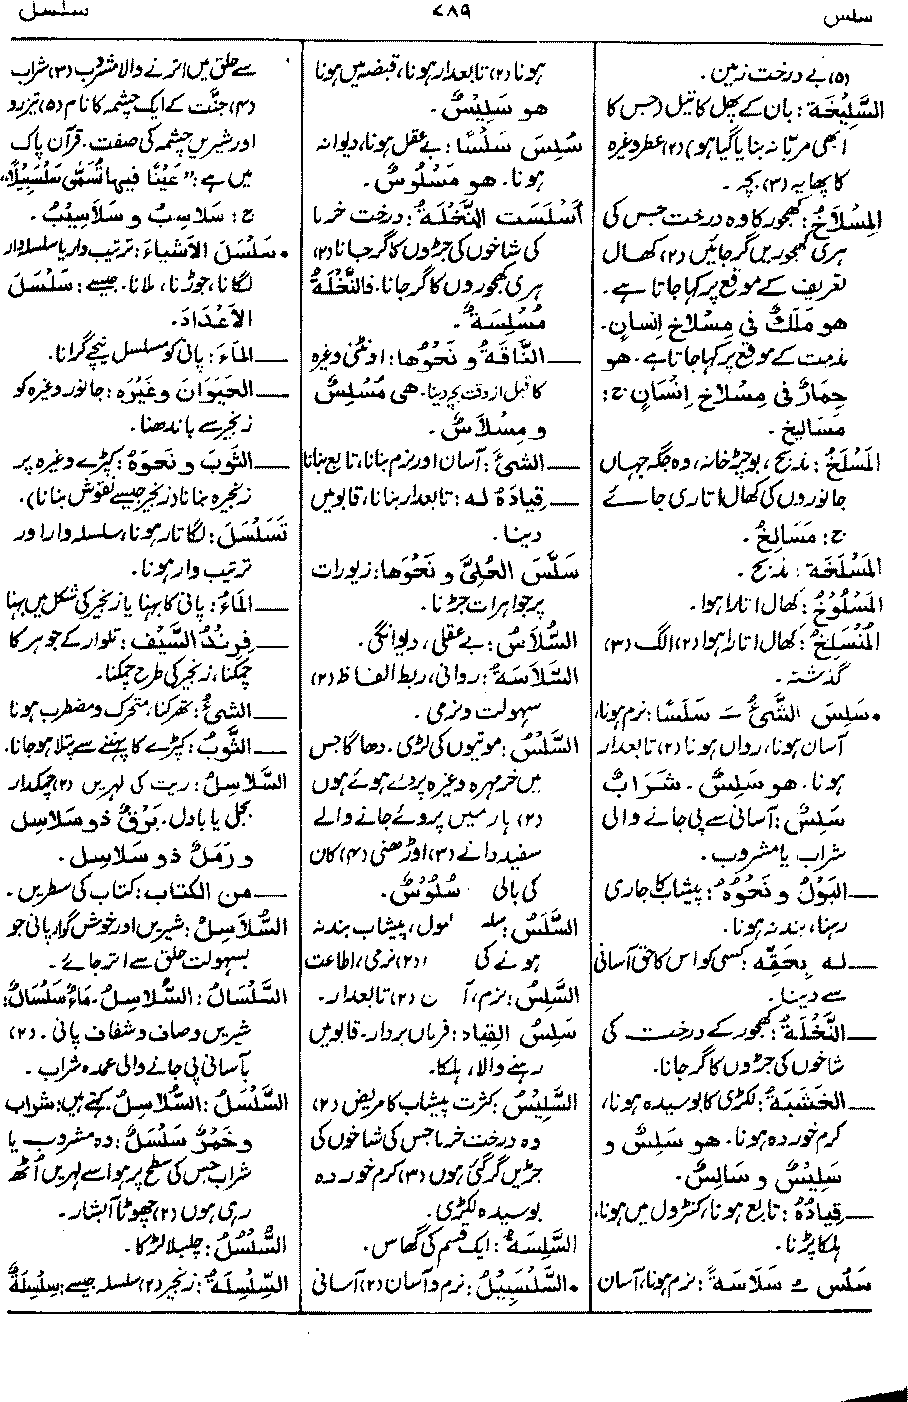 سلس ۷۸۹ سلسل
(۵) بے درخت زمین۔
السَّلِيْخَة: بان کے پھل کا تیل (جس کا
ابھی مربّا نہ بنایا گیا ہو) (۲) عطر وغیرہ
کا پھایہ (۳) بچہ۔
المِسْلَاخُ: کھجور کا وہ درخت جس کی
ہری کھجوریں گر جائیں (۲) کھال
تعریف کے موقع پر کہا جاتا ہے۔
هو مَلَكٌ فى مِسْلاخِ اِنسانٍ۔
مذمت کے موقع پر کہا جاتا ہے۔ هو
حِمَارٌ فى مِسْلاخِ اِنْسَانٍ ج:
مسَالِيخ۔
المَسْلَخُ: مذبح، بوچڑ خانہ، وہ جگہ جہاں
جانوروں کی کھال اتاری جائے
ج: مَسَالِخُ۔
المَسْلَخَة: مذبح۔
المَسْلُوْخُ: کھال اتارا ہوا۔
المُنْسَلِخُ: کھال اتارا ہوا (۲) الگ (۳)
گذشتہ۔
• سَلِسَ الشَّىْءُ ـَ سَلَسًا: نرم ہونا،
آسان ہونا، رواں ہونا (۲) تابعدار
ہونا۔ هو سَلِسٌ۔ شَرَابٌ
سَلِسٌ: آسانی سے پی جانے والی
شراب یا مشروب۔
— البَوْلُ و نَحْوُهُ: پیشاب کا جاری
رہنا، بند نہ ہونا۔
— له بِحَقِّه: کسی کو اس کا حق آسانی
سے دینا۔
— النَّخْلَةُ: کھجور کے درخت کی
شاخوں کی جڑوں کا گر جانا۔
— الخَشَبَةُ: لکڑی کا بوسیدہ ہونا،
کرم خوردہ ہونا۔ هو سَلِسٌ و
سَلِيْسٌ و سَالِسٌ۔
— قِيَادُهُ: تابع ہونا، کنٹرول میں ہونا،
ہلکا پڑنا۔
سَلُسَ ـُ سَلَاسَةً: نرم ہونا، آسان
ہونا (۲) تابعدار ہونا، قبضہ میں ہونا
هو سَلِيْسٌ۔
سُلِسَ سَلْسًا: بے عقل ہونا، دیوانہ
ہونا۔ هو مَسْلُوسٌ۔
أَسْلَسَت النَّخْلَةُ: درخت خرما
کی شاخوں کی جڑوں کا گر جانا (۲)
ہری کھجوروں کا گر جانا۔ فالنَّخْلَةُ
مُسْلِسَةٌ۔
— النَّاقَةُ و نَحْوُها: اونٹنی وغیرہ
کا قبل از وقت بچہ دینا۔ هى مُسْلِسٌ
و مِسْلَاسٌ۔
— الشئَ: آسان اور نرم بنانا، تابع بنانا
— قِيَادَهُ له: تابعدار بنانا، قابو میں
دینا۔
سَلَّسَ الحُلِيَّ و نَحْوَها: زیورات
پر جواہرات جڑنا۔
السُّلَاسُ: بے عقلی، دیوانگی۔
السَّلَاسَةُ: روانی، ربط الفاظ (۲)
سہولت و نرمی۔
السَّلْسُ: موتیوں کی لڑی۔ دھاگا جس
میں خرمہرہ وغیرہ پروئے ہوئے ہوں
(۲) ہار میں پروئے جانے والے
سفید دانے (۳) اوڑھنی (۴) کان
کی بالی سُلُوْسٌ۔
السَّلَسُ: سلہ بول، پیشاب بند نہ
ہونے کی (۲) نرمی، اطاعت
السَّلِسُ: نرم، آ ن (۲) تابعدار۔
سَلِسُ القِيَاد: فرماں بردار۔ قابو میں
رہنے والا، ہلکا۔
السَّلِيْسُ: کثرت پیشاب کا مریض (۲)
وہ درخت خرما جس کی شاخوں کی
جڑیں گر گئی ہوں (۳) کرم خوردہ
بوسیدہ لکڑی۔
السَّلِسَةُ: ایک قسم کی گھاس۔
• السَّلْسَبِيْلُ: نرم و آسان (۲) آسانی
سے حلق میں اترنے والا مشروب (۳) شراب
(۴) جنّت کے ایک چشمہ کا نام (۵) تیز رو
اور شیریں چشمہ کی صفت۔ قرآن پاک
میں ہے: "عَيْنًا فيها تُسَمّٰى سَلْسَبِيْلاً"
ج: سَلَاسِبُ و سَلَاسِيْبُ۔
• سَلْسَلَ الأَشْيَاءَ: ترتیب وار یا سلسلہ وار
لگانا، جوڑنا، ملانا۔ جیسے: سَلْسَلَ
الأَعْدَادَ۔
— المَاءَ: پانی کو مسلسل نیچے گرانا۔
— الحَيَوَانَ وغَيْرَه: جانور وغیرہ کو
زنجیر سے باندھنا۔
— الثَّوبَ و نَحوَهُ: کپڑے وغیرہ پر
زنجیرہ بنانا (زنجیر جیسے نقوش بنانا)۔
تَسَلْسَلَ: لگاتار ہونا، سلسلہ وار اور
ترتیب وار ہونا۔
— المَاءُ: پانی کا بہنا یا زنجیر کی شکل میں بہنا
— فِرِنْدُ السَّيْف: تلوار کے جوہر کا
چمکنا، زنجیر کی طرح چمکنا۔
— الشئُ: تھرکنا، متحرک و مضطرب ہونا
— الثَّوبُ: کپڑے کا پہننے سے پتلا ہو جانا۔
السَّلَاسِلُ: ریت کی لہریں (۲) چمکدار
بجلی یا بادل۔ بَرْقٌ ذو سَلَاسِل
و رَمْلٌ ذو سَلَاسِل۔
— من الكتاب: کتاب کی سطریں۔
السُّلَاسِلُ: شیریں اور خوش گوار پانی جو
بسہولت حلق سے اتر جائے۔
السَّلْسَالُ: السُّلَاسِلُ۔ مَاءٌ سَلْسَالٌ:
شیریں و صاف و شفاف پانی۔ (۲)
بآسانی پی جانے والی عمدہ شراب۔
السَّلْسَلُ: السُّلَاسِلُ۔ کہتے ہیں: شرابٌ
و خَمْرٌ سَلْسَلٌ: وہ مشروب یا
شراب جس کی سطح پر ہوا سے لہریں اُٹھ
رہی ہوں (۲) چھوٹا آبشار۔
السُّلْسُلُ: چلبلا لڑکا۔
السِّلْسِلَةُ: زنجیر (۲) سلسلہ جیسے: سِلْسِلَةُ